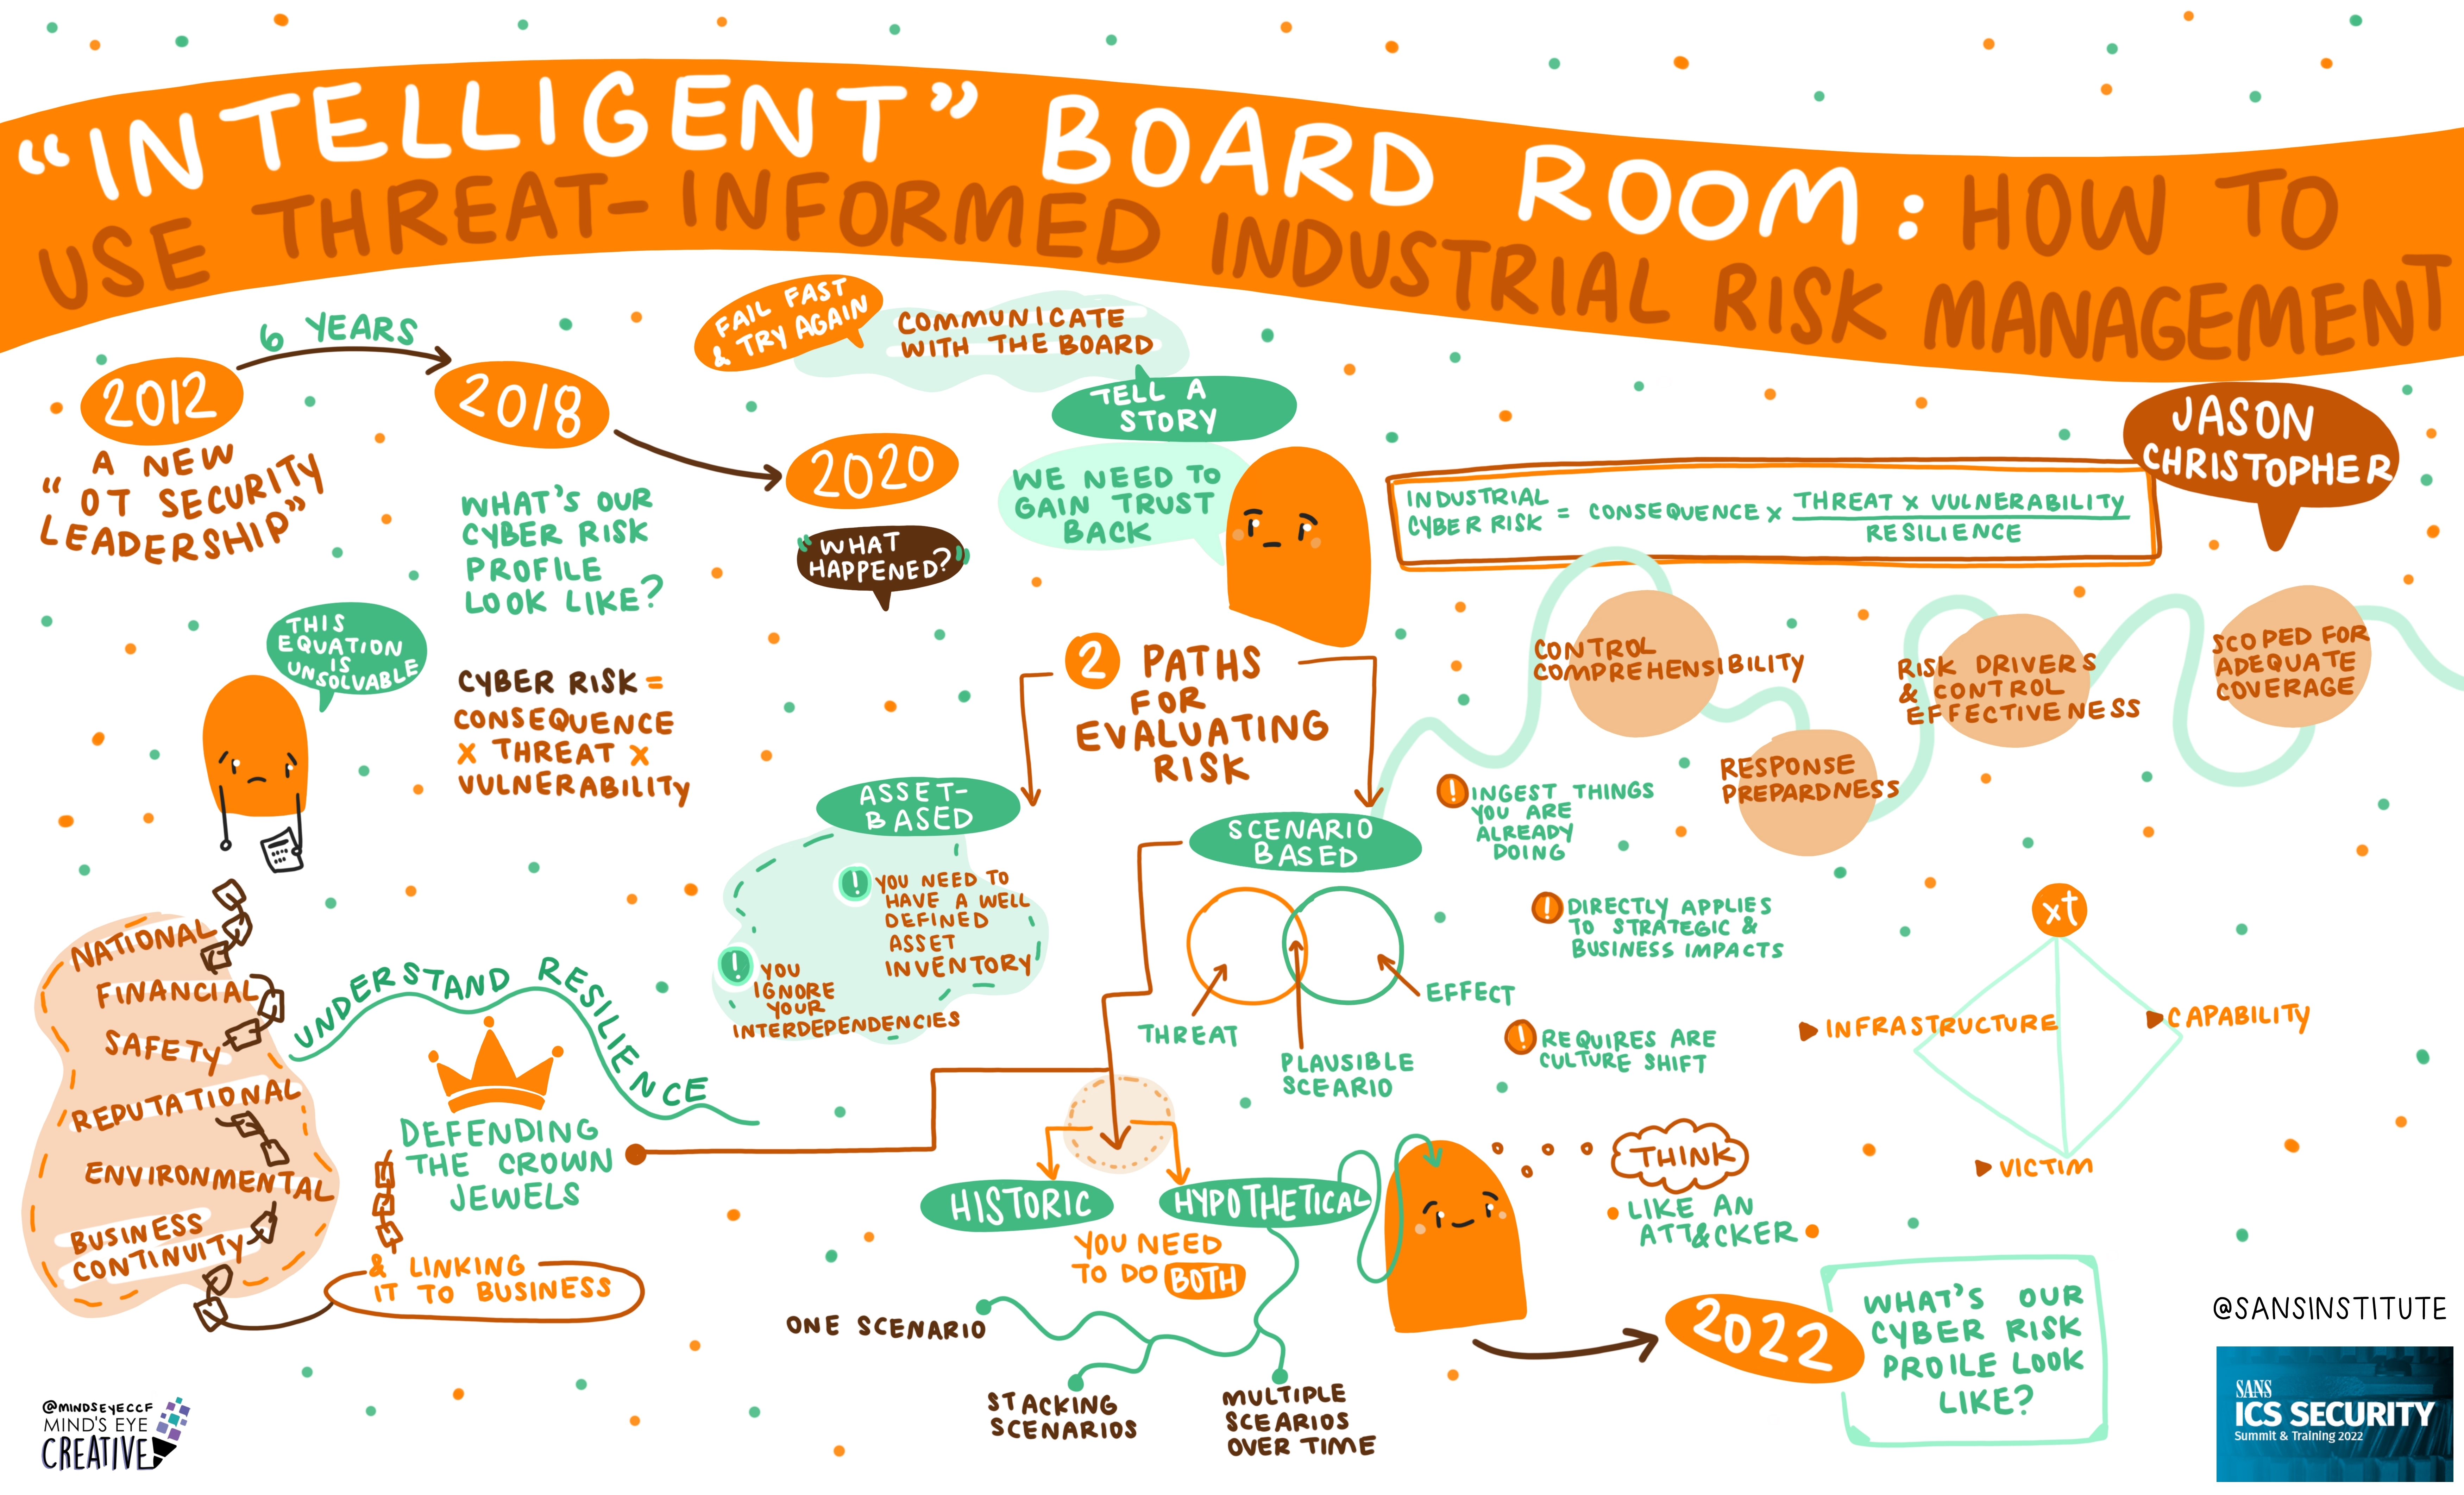 "INTELLIGENT" BOARD ROOM: HOW TO
USE THREAT-INFORMED INDUSTRIAL RISK MANAGEMENT
JASON
CHRISTOPHER
2012
6 YEARS
2018
2020
A NEW
"OT SECURITY
LEADERSHIP"
WHAT'S OUR
CYBER RISK
PROFILE
LOOK LIKE?
"WHAT
HAPPENED?"
FAIL FAST
& TRY AGAIN
COMMUNICATE
WITH THE BOARD
TELL A
STORY
WE NEED TO
GAIN TRUST
BACK
INDUSTRIAL
CYBER RISK = CONSEQUENCE x THREAT x VULNERABILITY
RESILIENCE
THIS
EQUATION
IS
UNSOLVABLE
CYBER RISK =
CONSEQUENCE
X THREAT X
VULNERABILITY
NATIONAL
FINANCIAL
SAFETY
REPUTATIONAL
ENVIRONMENTAL
BUSINESS
CONTINUITY
UNDERSTAND RESILIENCE
DEFENDING
THE CROWN
JEWELS
& LINKING
IT TO BUSINESS
2 PATHS
FOR
EVALUATING
RISK
ASSET-
BASED
! YOU NEED TO
HAVE A WELL
DEFINED
ASSET
INVENTORY
! YOU
IGNORE
YOUR
INTERDEPENDENCIES
SCENARIO
BASED
THREAT
PLAUSIBLE
SCEARIO
EFFECT
CONTROL
COMPREHENSIBILITY
RESPONSE
PREPARDNESS
RISK DRIVERS
& CONTROL
EFFECTIVENESS
SCOPED FOR
ADEQUATE
COVERAGE
! INGEST THINGS
YOU ARE
ALREADY
DOING
! DIRECTLY APPLIES
TO STRATEGIC &
BUSINESS IMPACTS
! REQUIRES ARE
CULTURE SHIFT
xt
INFRASTRUCTURE
CAPABILITY
VICTIM
HISTORIC
HYPOTHETICAL
YOU NEED
TO DO BOTH
ONE SCENARIO
STACKING
SCENARIOS
MULTIPLE
SCEARIOS
OVER TIME
THINK
LIKE AN
ATT&CKER
2022
WHAT'S OUR
CYBER RISK
PROILE LOOK
LIKE?
@SANSINSTITUTE
SANS
ICS SECURITY
Summit & Training 2022
@MINDSEYECCF
MIND'S EYE
CREATIVE